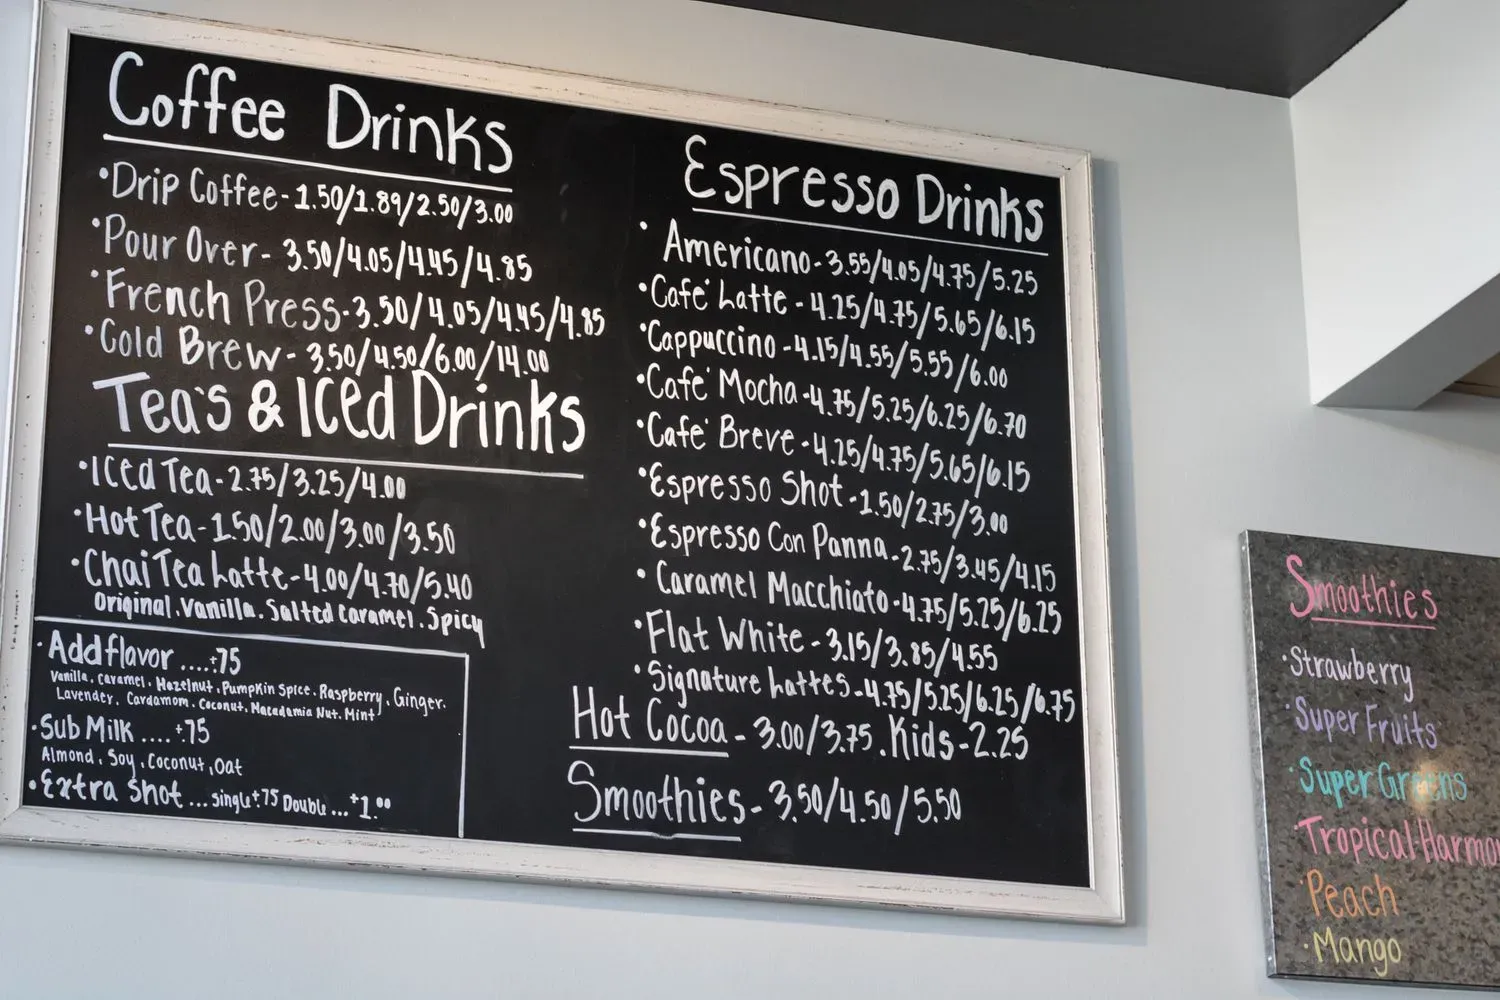 Coffee Drinks
•Drip Coffee-1.50/1.89/2.50/3.00
•Pour Over- 3.50/4.05/4.45/4.85
•French Press-3.50/4.05/4.45/4.85
•Cold Brew- 3.50/4.50/6.00/14.00
Tea's & Iced Drinks
•Iced Tea-2.75/3.25/4.00
•Hot Tea-1.50/2.00/3.00/3.50
•Chai Tea Latte-4.00/4.70/5.40
Original.Vanilla.Salted Caramel.Spicy
•Add flavor ....+75
Vanilla.Caramel.Hazelnut.Pumpkin Spice.Raspberry.Ginger.
Lavender.Cardamom.Coconut.Macadamia Nut.Mint
•Sub Milk ....+.75
Almond.Soy.Coconut.Oat
•Extra Shot...Single+75 Double...+1.00
Espresso Drinks
•Americano-3.55/4.05/4.75/5.25
•Cafe' Latte-4.25/4.75/5.65/6.15
•Cappuccino-4.15/4.55/5.55/6.00
•Cafe' Mocha-4.75/5.25/6.25/6.70
•Cafe' Breve-4.25/4.75/5.65/6.15
•Espresso Shot-1.50/2.75/3.00
•Espresso Con Panna-2.75/3.45/4.15
•Caramel Macchiato-4.75/5.25/6.25
•Flat White-3.15/3.85/4.55
•Signature Lattes-4.75/5.25/6.25/6.75
Hot Cocoa-3.00/3.75.Kids-2.25
Smoothies-3.50/4.50/5.50
Smoothies
•Strawberry
•Super Fruits
•Super Greens
•Tropical Harmo
•Peach
•Mango